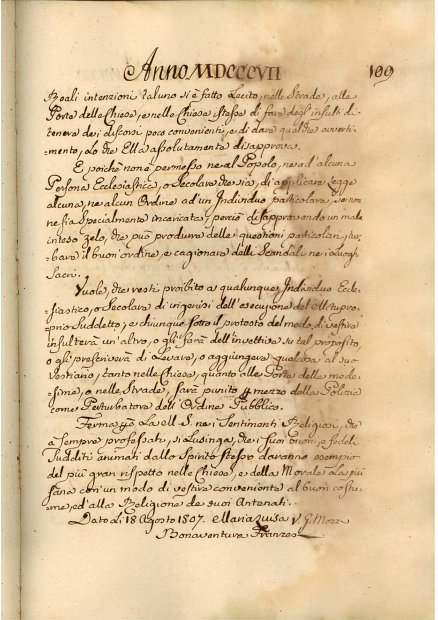 Anno MDCCCVII
199
Reali intenzioni taluno si è fatto Lecito, nelle Strade, alle
Porte delle Chiese, e nelle Chiese stesse di fare degl'insulti, di
tenere dei discorsi poco convenienti, e di dare qualche avverti-
mento, Lo che Ella assolutamente disapprova.
E poichè non è permesso nè al Popolo, nè ad alcuna
Persona Ecclesiastica, o Secolare che sia, di applicare Legge
alcuna, nè alcun Ordine ad un Individuo particolare, se non
ne sia Specialmente incaricata; perciò disapprovando un male
inteso zelo, che può produrre delle questioni particolari, tur-
bare il buon'ordine, e cagionare delli Scandali nei Luoghi
Sacri.
Vuole, che resti proibito a qualunque Individuo Eccle-
siastico, o Secolare di ingerirsi dell'esecuzione del Motupro-
prio Suddetto, e chiunque sotto il pretesto del modo di vestire
insulterà un'altro, o gli farà dell'invettive su tal proposito,
o gli prescriverà di Levare, o aggiungere qualcosa al suo
Vestiario, tanto nelle Chiese, quanto alle Porte della mede-
sime, o nelle Strade, sarà punito per mezzo della Polizia
come Perturbatore dell'Ordine Pubblico.
Ferma La M. S. nei Sentimenti Religiosi, che
à Sempre professati, si Lusinga, che i suoi buoni, e fedeli
Sudditi animati dallo Spirito stesso daranno esempio
del più gran rispetto nelle Chiese, e della Morale La più
sana con un modo di vestire conveniente al buon costu-
me, ed alla Religione dei suoi Antenati.
Dato li 18 Agosto 1807. Maria Luisa V. G. Mozzi
Bonaventura Franzesi